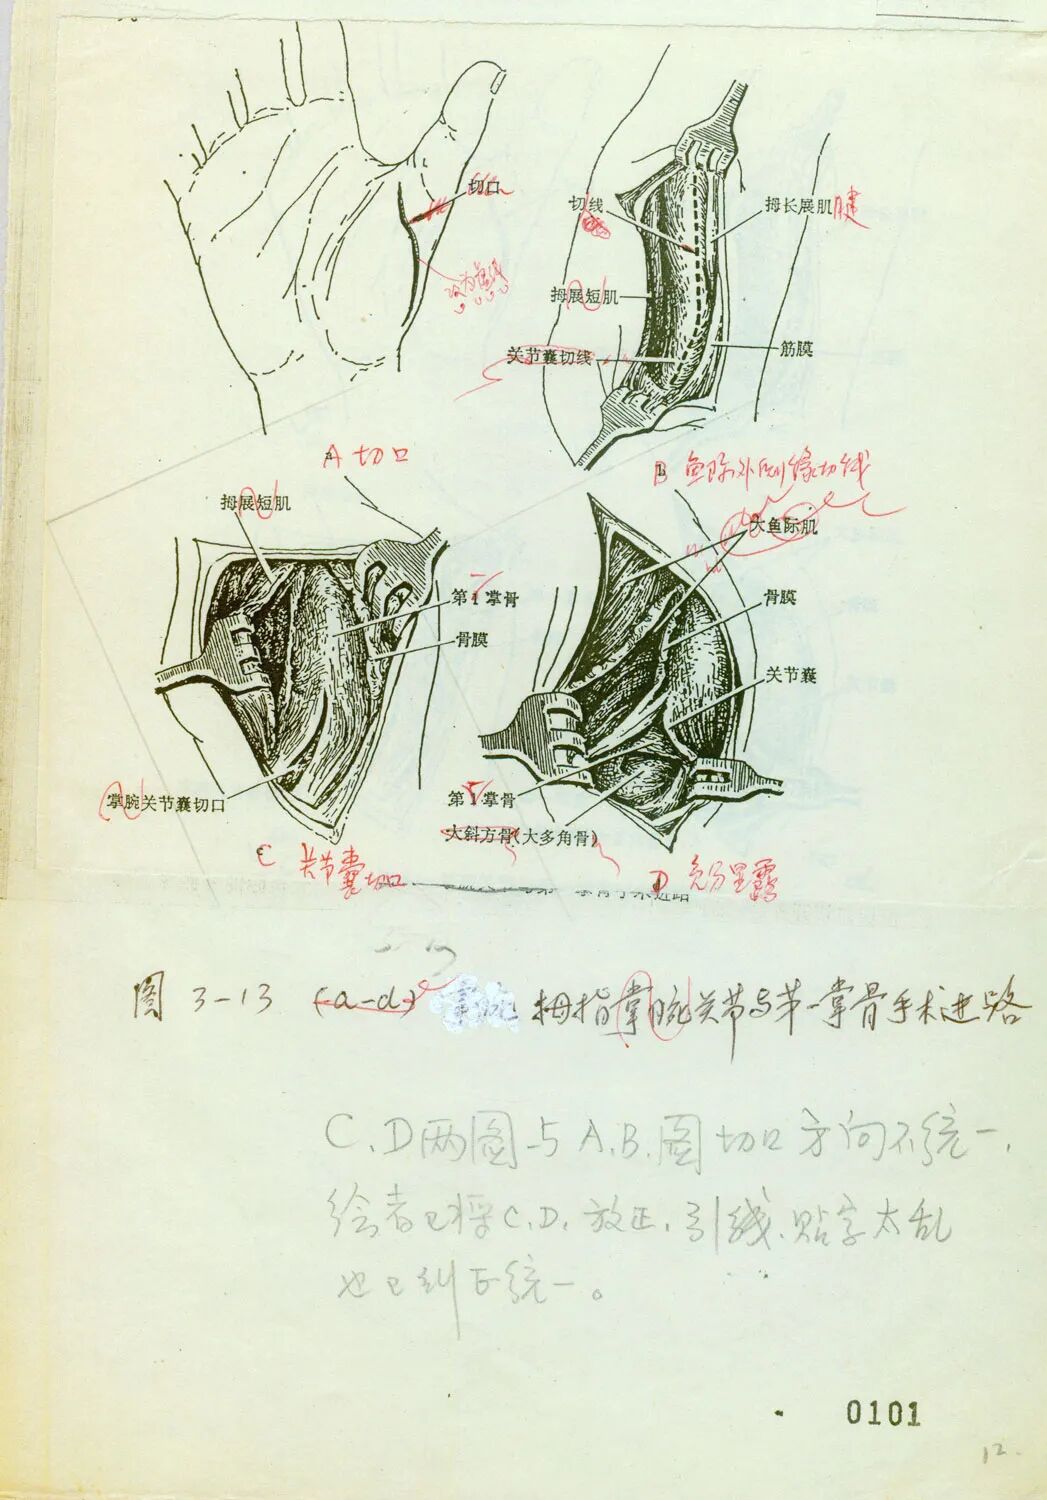 切口
改为虚线
A 切口
切线
拇长展肌腱
拇展短肌
关节囊切线
筋膜
B 鱼际外侧缘切线
拇展短肌
第1掌骨
骨膜
掌腕关节囊切口
C 关节囊切口
大鱼际肌
骨膜
关节囊
第1掌骨
大斜方骨(大多角骨)
D 充分显露
图 3-13 (a-d) 拇指掌腕关节与第一掌骨手术进路
C、D两图与A、B、图切口方向不统一,
绘者已将C、D、放正,引线、贴字太乱
也已纠正统一。
0101
12